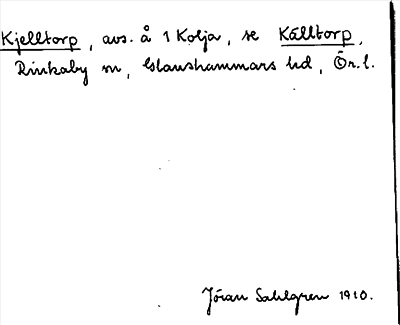 Kjelltorp, avs. å 1 Kolja, se Källtorp,
Rinkaby sn, Glanshammars hd, Ör. l.
Jöran Sahlgren 1910.